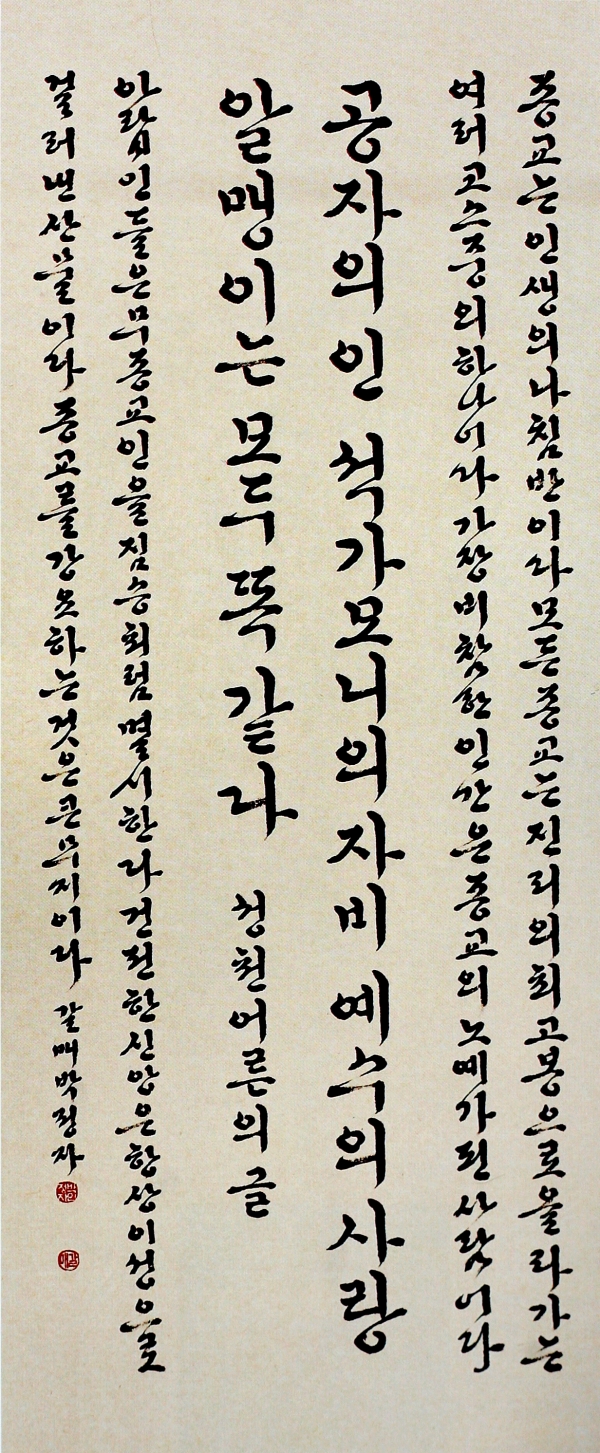 종교는 인생의 나침반이다 모든 종교는 진리의 최고봉으로 올라가는
여러 코스 중의 하나이다 가장 비참한 인간은 종교의 노예가 된 사람이다
공자의 인 석가모니의 자비 예수의 사랑
알맹이는 모두 똑같다 청천어른의 글
아랍인들은 무종교인을 짐승처럼 멸시한다 건전한 신앙은 항상 이성으로
걸러낸 산물이다 종교를 강요하는 것은 큰 무지이다 갈매 박정자